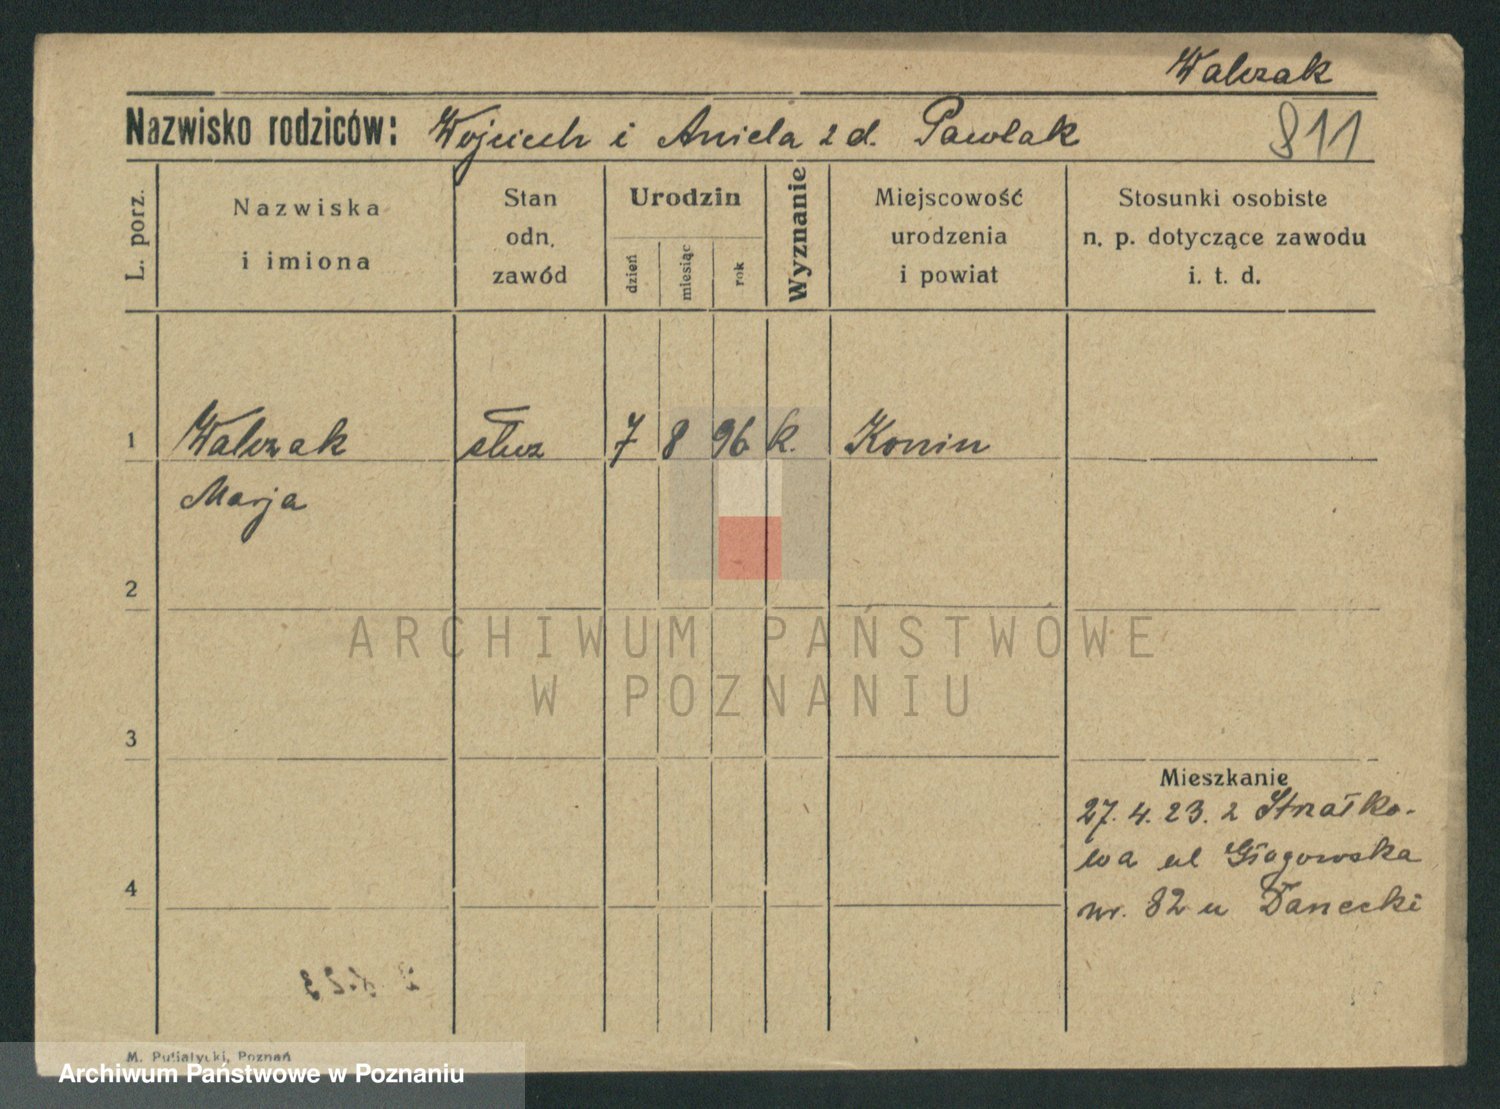 Walczak
Nazwisko rodziców: Wojciech i Aniela z d. Pawlak 811
L. porz.
Nazwiska
i imiona
Stan
odn.
zawód
Urodzin
dzień
miesiąc
rok
Wyznanie
Miejscowość
urodzenia
i powiat
Stosunki osobiste
n. p. dotyczące zawodu
i. t. d.
1 Walczak służ 7 8 96 k. Konin
Marja
2
ARCHIWUM PAŃSTWOWE
W POZNANIU
3
Mieszkanie
27. 4. 23. z Strałko-
wa ul Głogowska
nr. 82 u Danecki
4
M. Putiatycki, Poznań
Archiwum Państwowe w Poznaniu